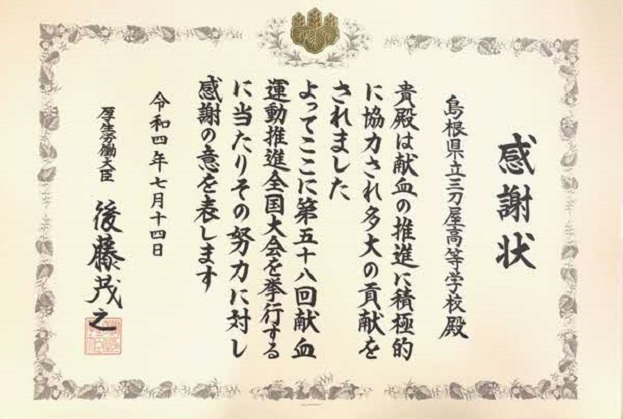 感謝状
島根県立三刀屋高等学校殿
貴殿は献血の推進に積極的
に協力され多大の貢献を
されました
よってここに第五十八回献血
運動推進全国大会を挙行する
に当たりその努力に対し
感謝の意を表します
令和四年七月十四日
厚生労働大臣 後藤茂之